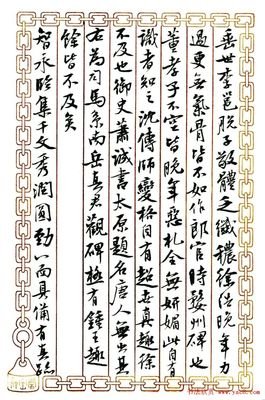 垂世李邕脱子敬體乏纖穠徐浩晚年力
過更無氣骨皆不如作郎官時婺州碑也
董孝子不空皆晚年惡札全無妍媚此自有
識者知之沈傳師變格自有超世真趣徐
不及也御史蕭誠書太原題名唐人無出其
右為司馬系南岳真君觀碑極有鍾王趣
餘皆不及矣
智永臨集千文秀潤圓勁八面具備有真跡